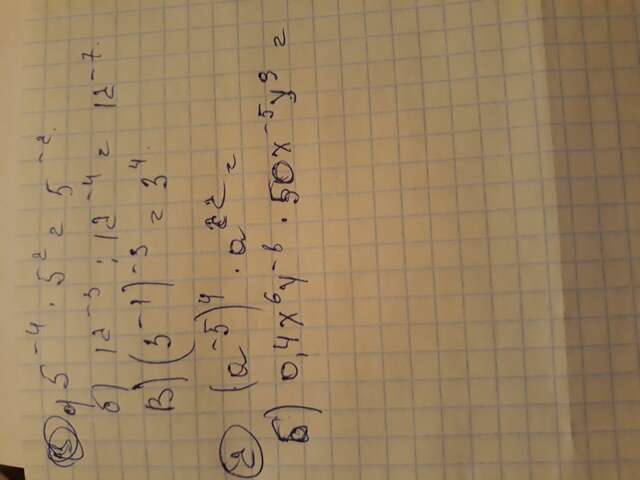 а) 5⁻⁴ · 5² = 5⁻².
б) 12⁻³ : 12⁻⁴ = 12⁻⁷.
В) (3⁻¹)⁻³ = 3⁴.
2 (a⁻⁵)⁴ · a²² =
б) 0,4x⁶y⁻⁸ · 50x⁻⁵y⁹ =